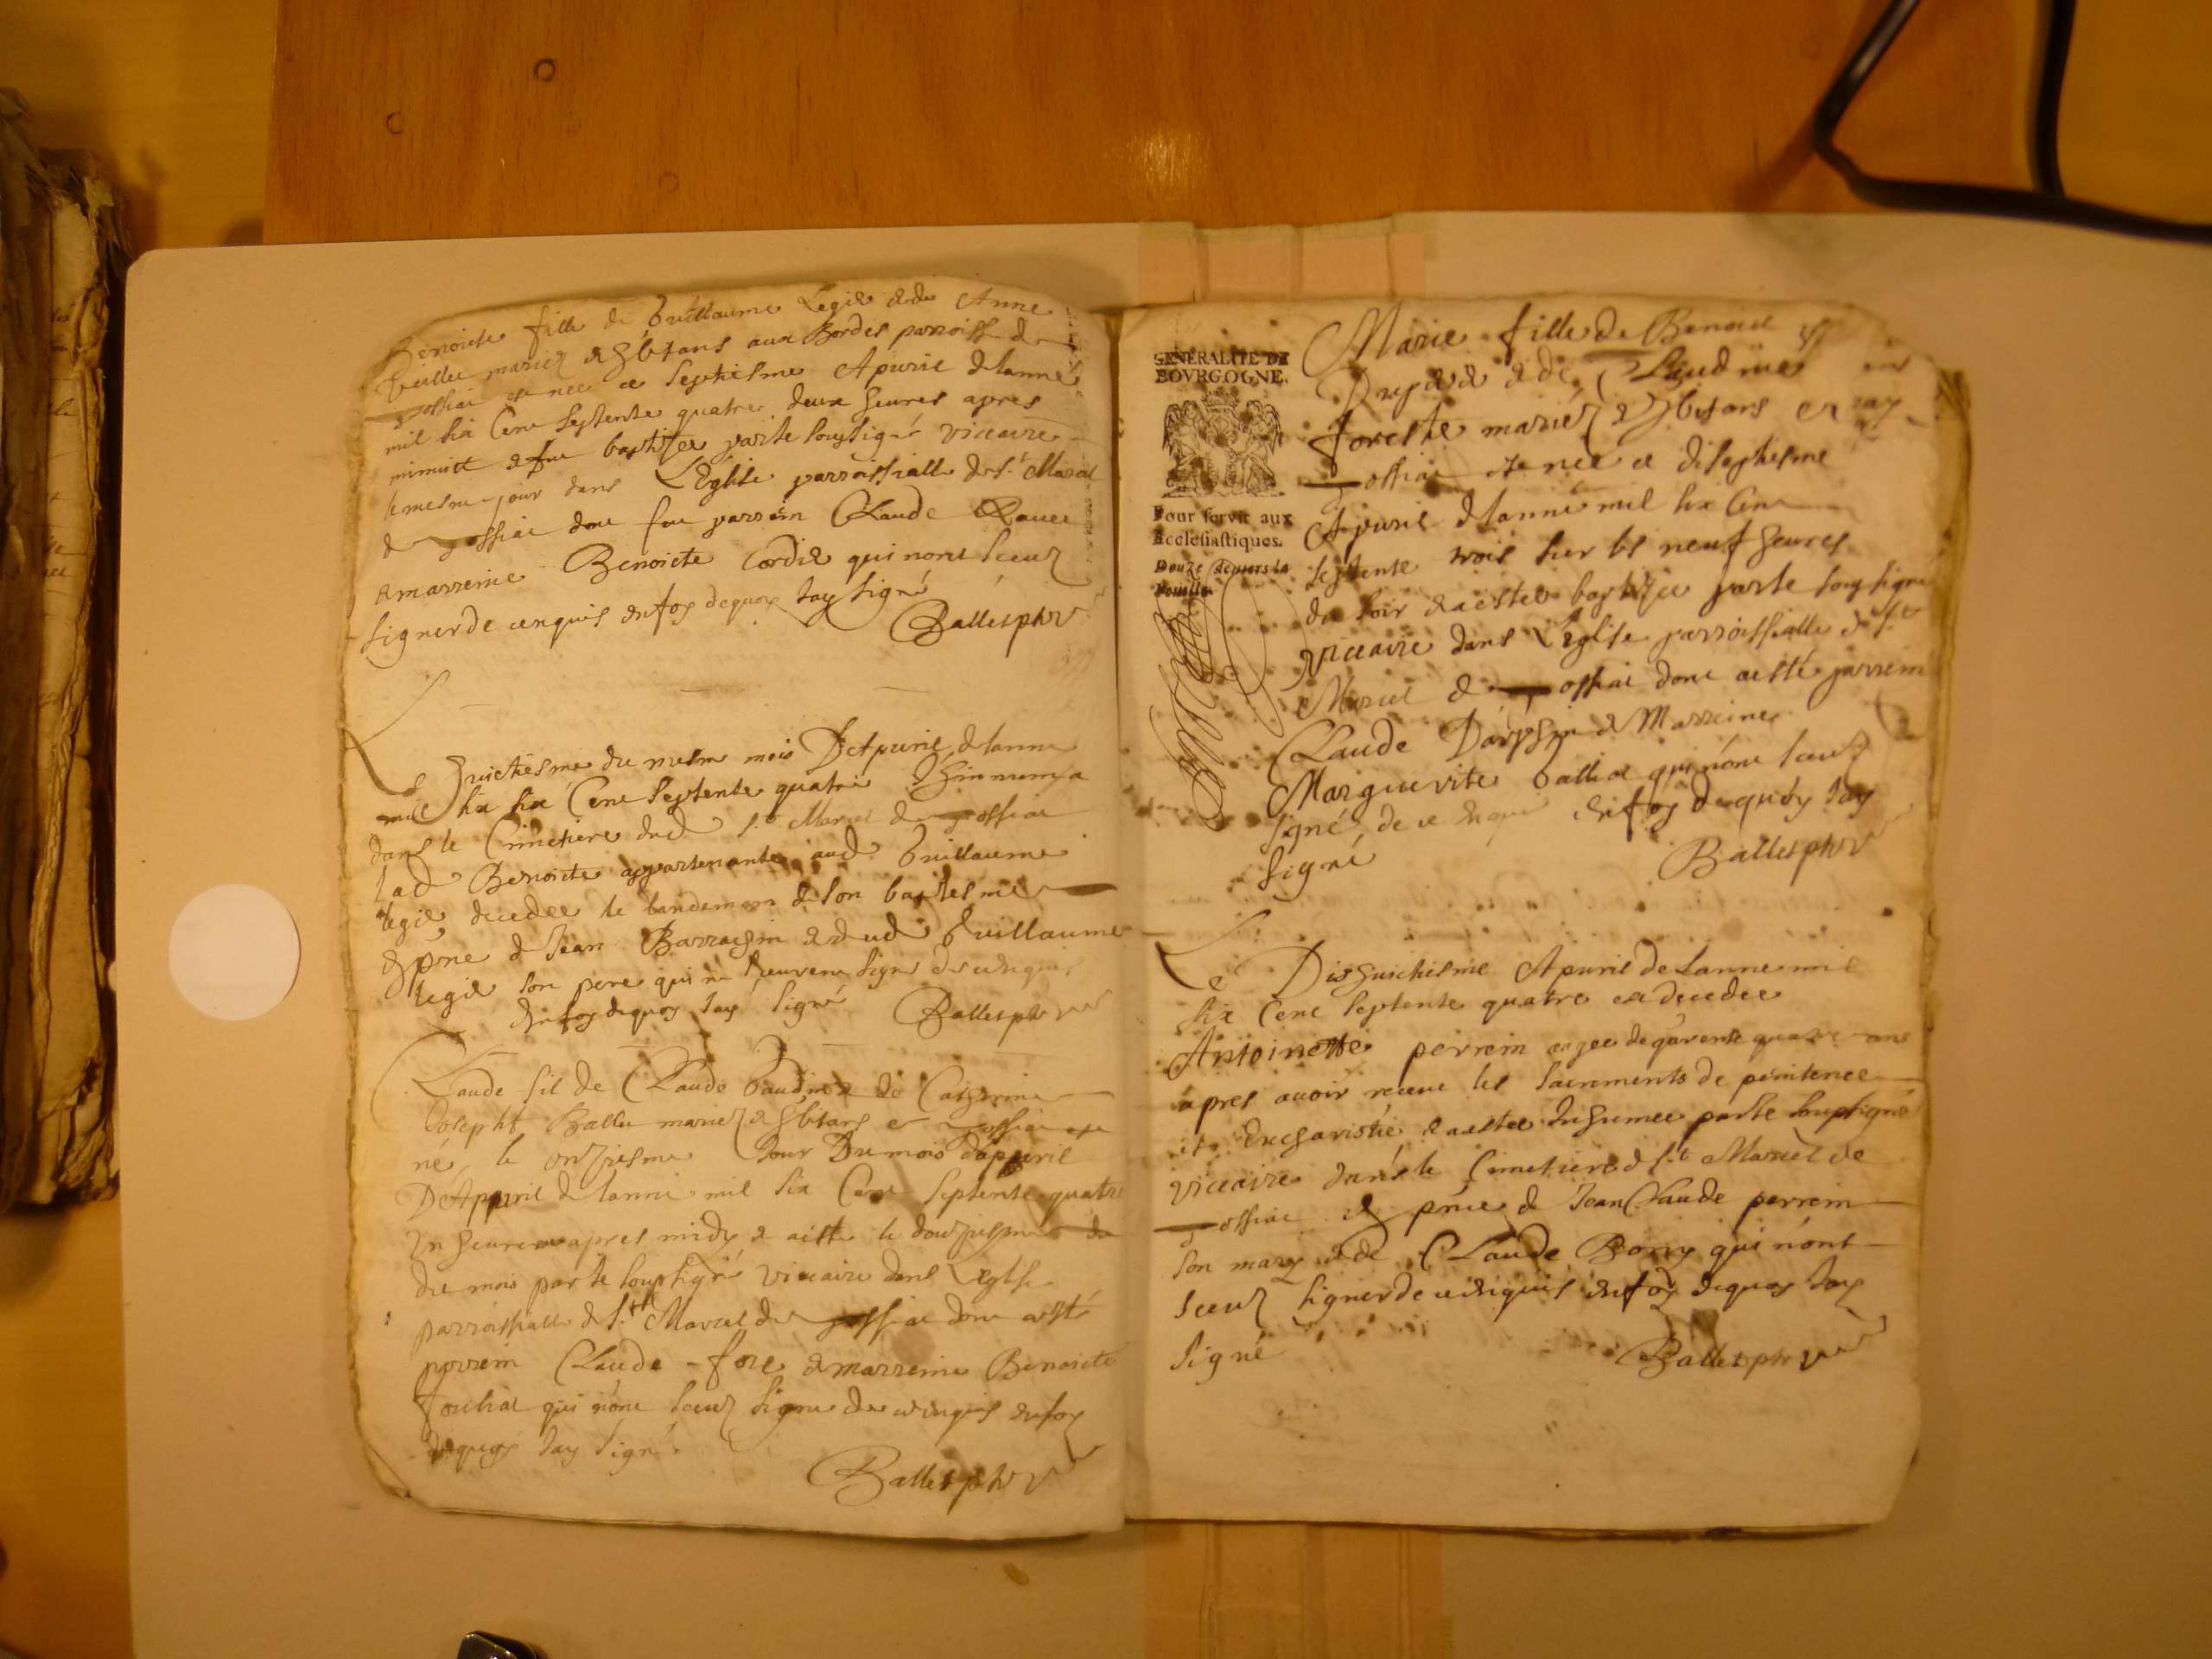 Benoicte fille de Guillaume Legie & de Anne
mariez & hbitans aux Bordes parroisse de
ossiat est nee ce septiesme Apuril de lanne
mil six Cent septente quatre deux heures apres
minuit & fut baptizee par le soussigné viccaire
le mesme jour dans L'Eglise parroissialle de St Marcel
de gossiat dont fut parrein Claude
& marreine Benoicte Cordie qui nont sceuz
signer de ce enquis en foy de quoy Jay signé
Ballet ptre v
Le huictiesme du mesme mois D'Apuril de lanne
mil six six Cent septente quatre Jhinnuma
dans le Cimetiere dud St Marcel de gossiat
lad Benoicte appartenante aud Guillaume
legie decedee le landemain de son baptesme
& pnce de Jean Barrachin & dud Guillaume
legie son pere qui ne sceuvent signe de ce enquis
en foy de quoy Jay signé Ballet ptre v
Claude fil de Claude & de Catherine
Joseph Ballet mariez & hbitans est
né le onziesme Jour Du mois dapuril
D'Appuril de lanne mil six Cent septente quatre
un heure apres midy & a este le douziesme du
du mois par le soussigné viccaire dans Leglise
parroissialle de St Marcel de gossiat dont a esté
parrein Claude fore & marreine Benoicte
qui n'ont sceuz signe de ce enquis en foy
de quoy Jay signé.
Ballet ptre v
GENERALITE DE
BOVRGOGNE.
Pour servir aux
Ecclesiastiques.
Douze deniers la
feuille.
Marie fille de Benoict
& de Claudine
foreste mariez & hbitans
ossiat est nee ce diseptiesme
Apuril de lanne mil six Cent
septente trois sur les neuf heures
du soir & a estee baptizee par le soussigné
viccaire dans L'Eglise parroissialle de St
Marcel de ossiat dont a esté parrein
Claude Dauphin & Marreine
Marguerite qui n'ont sceuz
signé de ce enquis en foy de quoy Jay
signé
Ballet ptre v
Le Dixhuictiesme Apuril de Lanne mil
six Cent septente quatre est decedee
Antoinette perrein agee de quarente quatre ans
apres auoir receue les sacrements de penitence
et Eucharistie & a estee Inhumee par le soussigné
viccaire dans le Cimetiere de St Marcel de
ossiat & pnce de Jean Claude perrein
son mary & de Claude Bony qui n'ont
sceuz signer de ce enquis en foy de quoy Jay
signé
Ballet ptre v